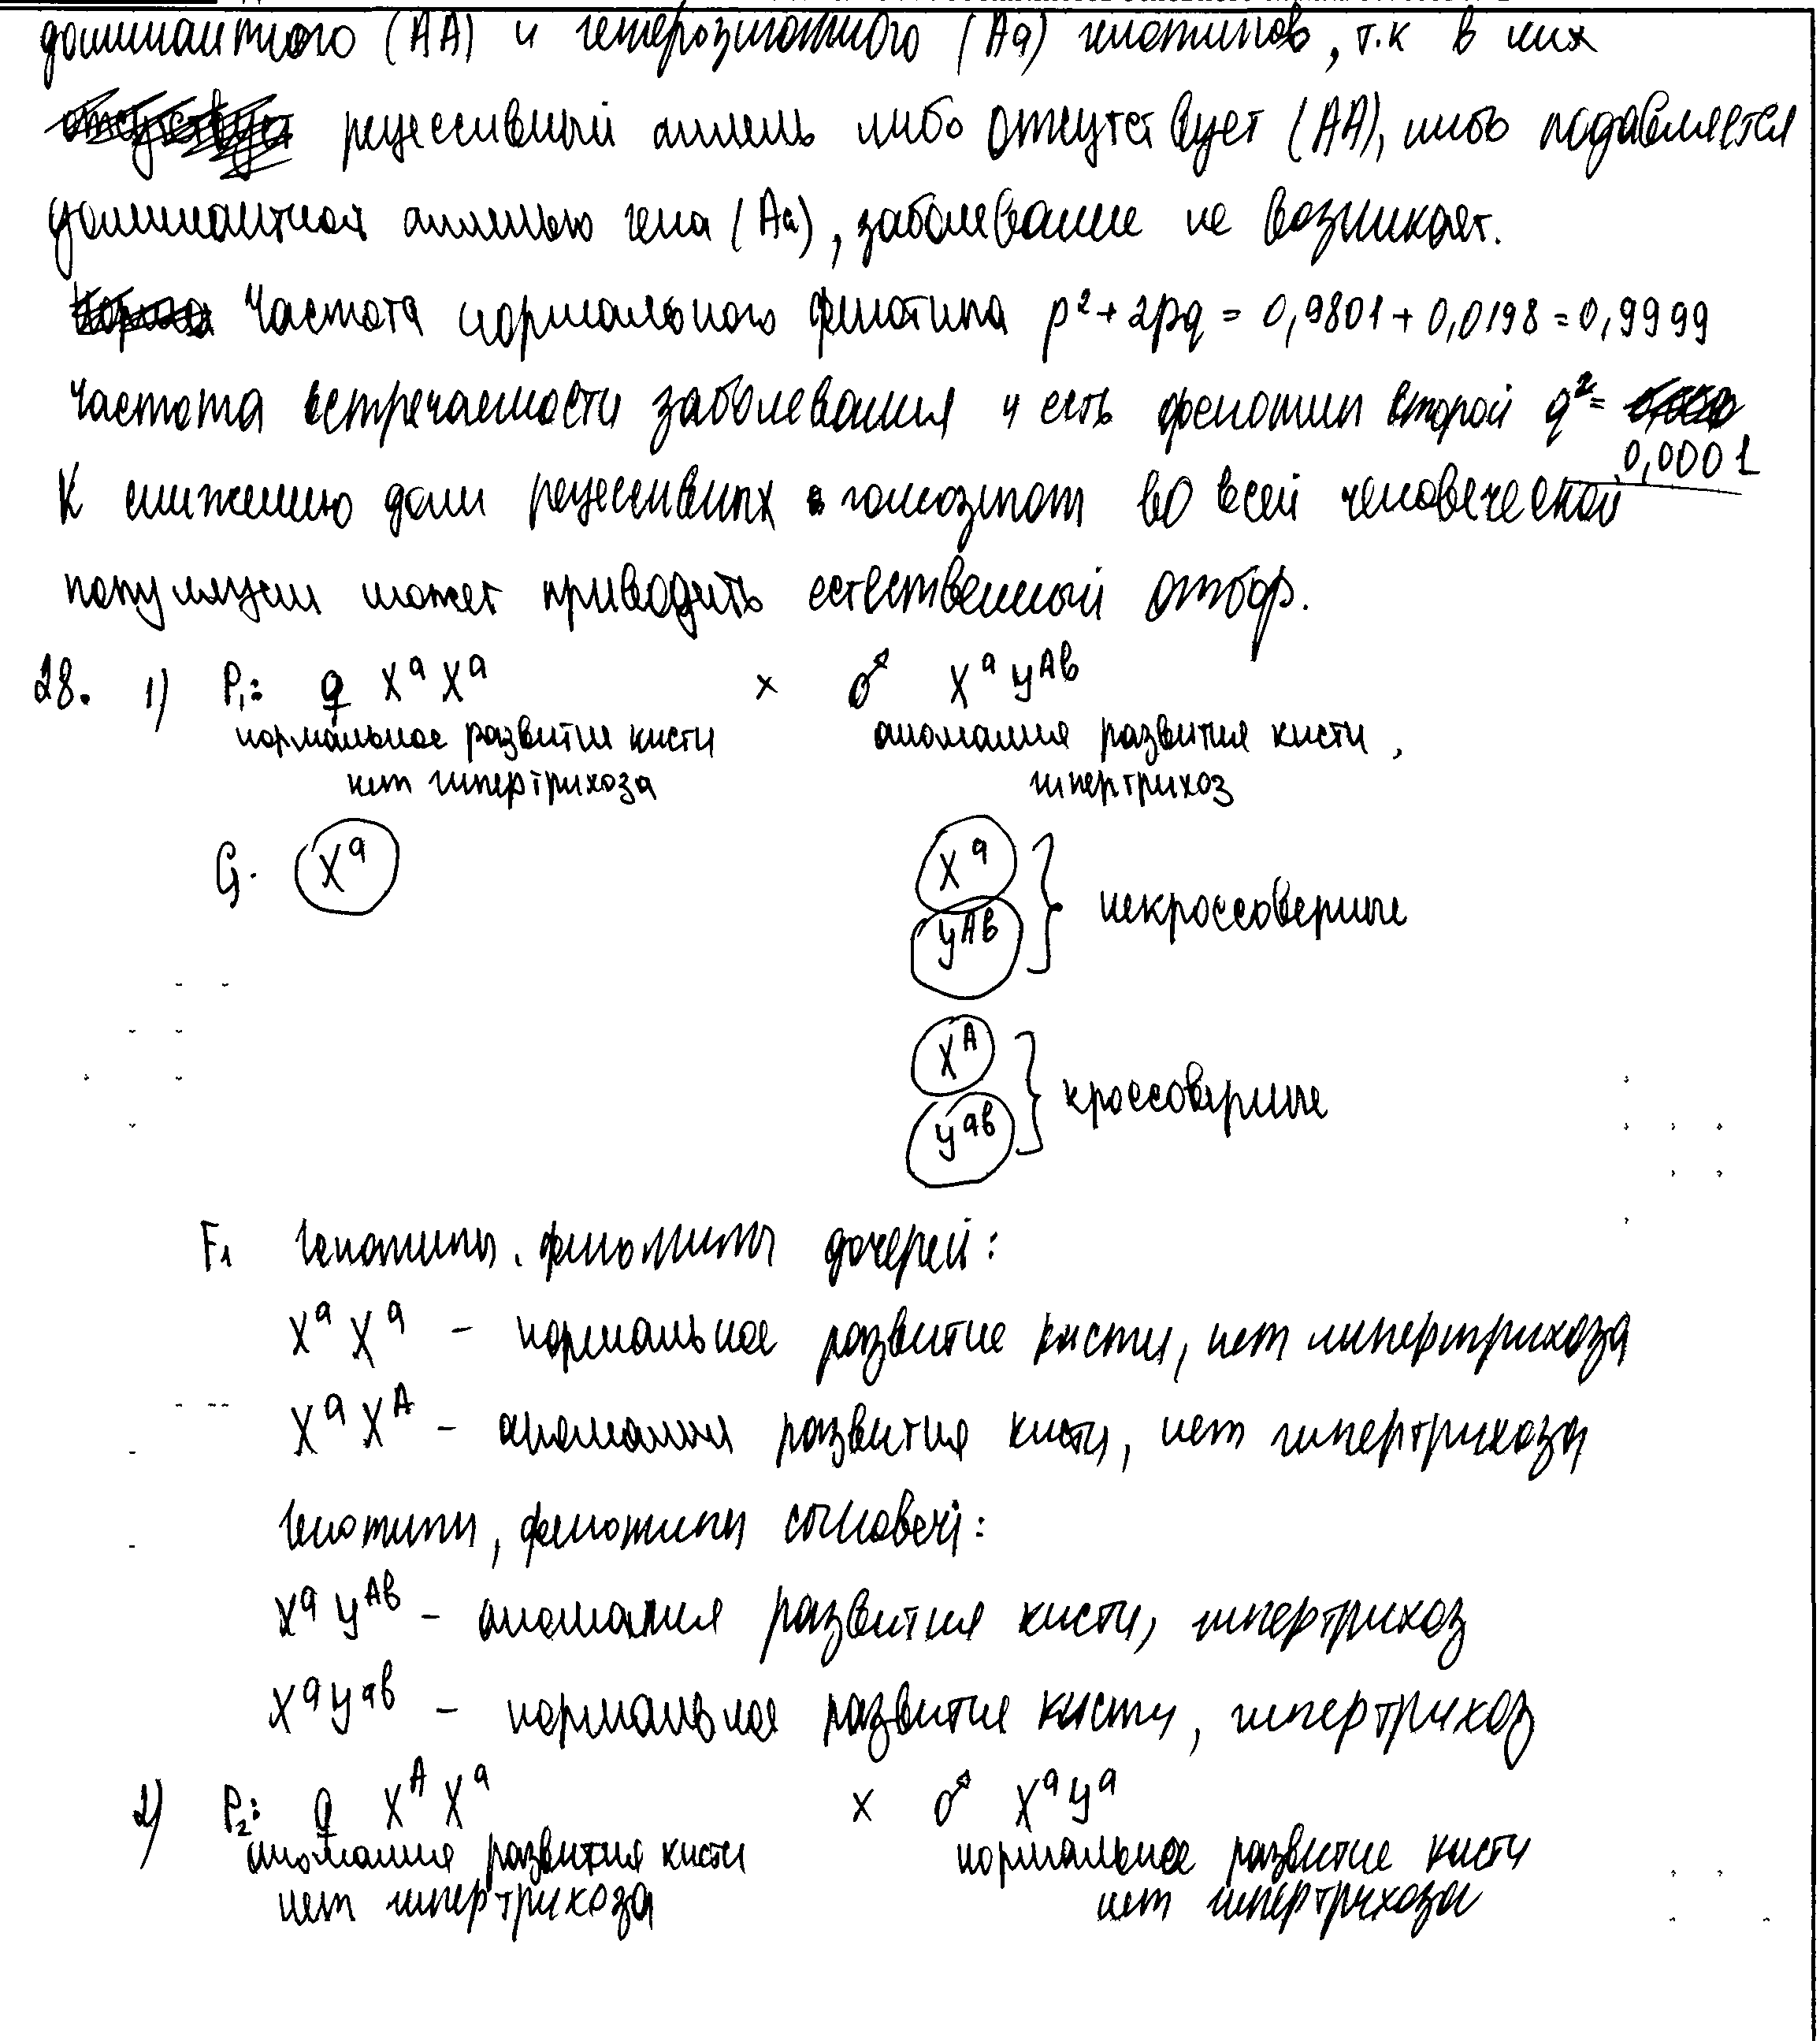 доминантного (АА) и гетерозиготного (Аа) генотипов, т.к в них
рецессивный аллель либо отсутствует (АА), либо подавляется
доминантной аллелью гена (Аа), заболевание не возникает.
Частота нормального фенотипа p²+2pq = 0,9801+0,0198=0,9999
Частота встречаемости заболевания и есть фенотип второй q²=
0,0001
К снижению доли рецессивных гомозигот во всей человеческой
популяции может приводить естественный отбор.
28. 1) P₁: ♀ XᵃXᵃ × ♂ XᵃYᴬᵇ
нормальное развитие кисти аномалия развития кисти,
нет гипертрихоза гипертрихоз
G. Xᵃ Xᵃ
Yᴬᵇ
некроссоверные
Xᴬ
Yᵃᵇ
кроссоверные
F₁ генотипы, фенотипы дочерей:
XᵃXᵃ – нормальное развитие кисти, нет гипертрихоза
XᵃXᴬ – аномалия развития кисти, нет гипертрихоза
генотипы, фенотипы сыновей:
XᵃYᴬᵇ – аномалия развития кисти, гипертрихоз
XᵃYᵃᵇ – нормальное развитие кисти, гипертрихоз
2) P₂: ♀ XᴬXᵃ × ♂ XᵃYᵃ
аномалия развития кисти нормальное развитие кисти
нет гипертрихоза нет гипертрихоза